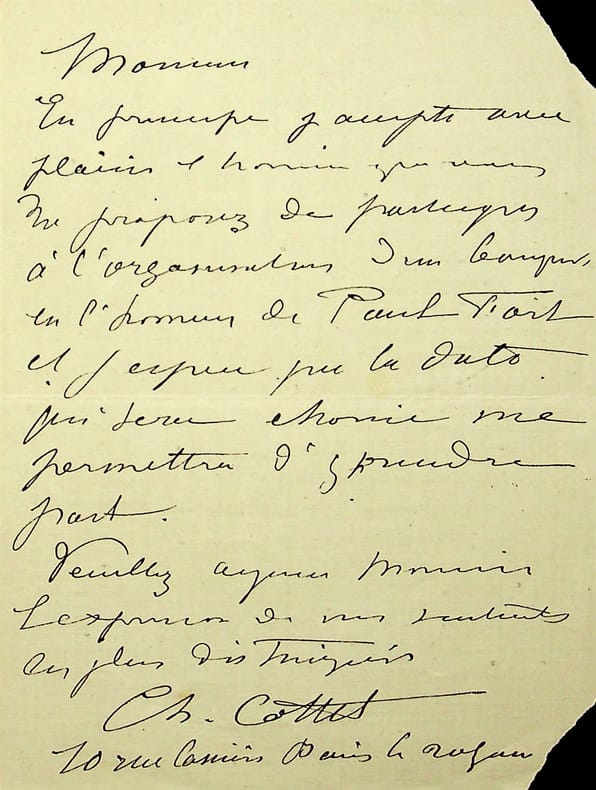 Monsieur
En principe j'accepte avec
plaisir l'honneur que vous
me proposez de participer
à l'organisation d'un banquet
en l'honneur de Paul Fort
et j'espère que la date
qui sera choisie me
permettra d'y prendre
part.
Veuillez agréer Monsieur
l'expression de mes sentiments
les plus distingués
Ch. Cottet
10 rue Cassini Paris le